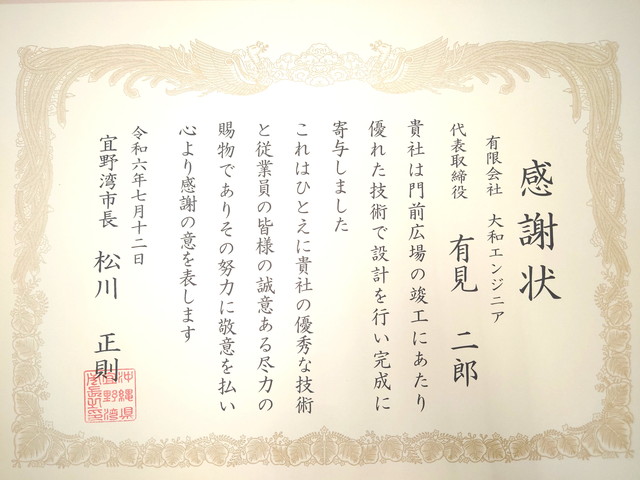 感謝状
有限会社 大和エンジニア
代表取締役 有見 二郎
貴社は門前広場の竣工にあたり
優れた技術で設計を行い完成に
寄与しました
これはひとえに貴社の優秀な技術
と従業員の皆様の誠意ある尽力の
賜物でありその努力に敬意を払い
心より感謝の意を表します
令和六年七月十二日
宜野湾市長 松川 正則
沖縄県
宜野湾
市長之印